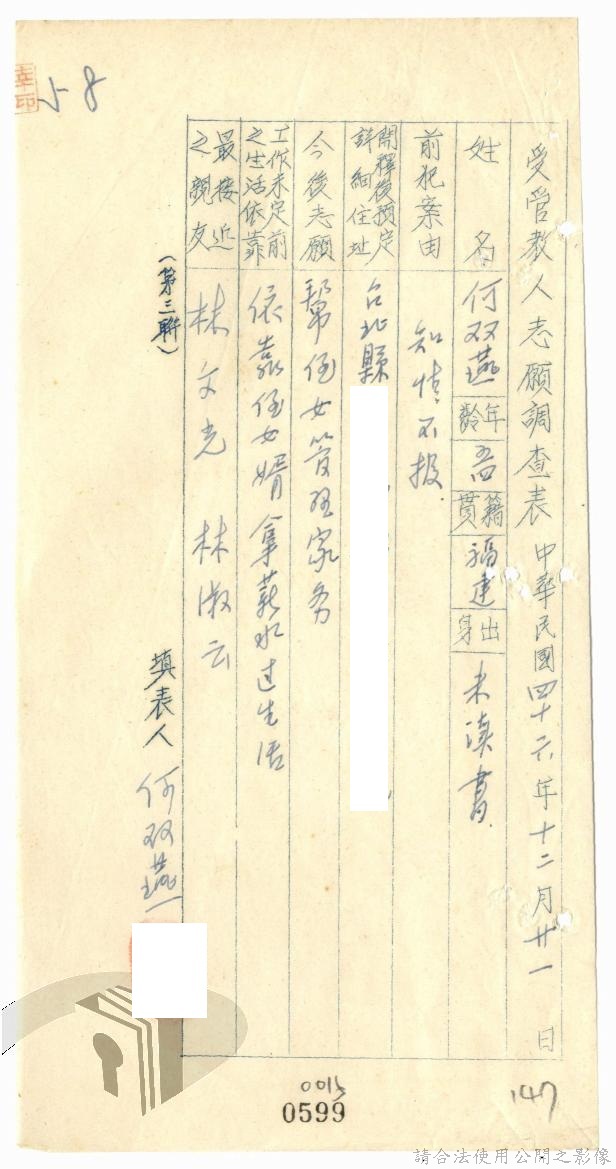 受管教人志願調查表 中華民國四十六年十二月廿一日
姓名 何双燕 年齡 五四 籍貫 福建 出身 未讀書
前犯案由 知情不报
開釋後預定詳細住址 台北縣
今後志願 幫侄女管理家务
工作未定前之生活依靠 依靠侄女婿拿薪水过生活
最接近之親友 林文光 林淑云
(第三聯)
填表人 何双燕
58
147
0015
0599
請合法使用公開之影像